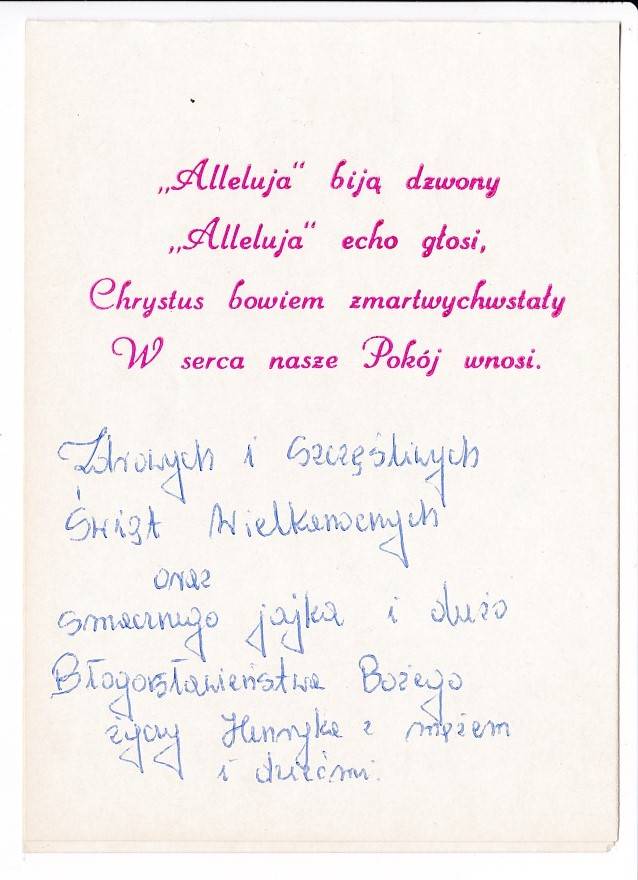 „Alleluja" biją dzwony
„Alleluja" echo głosi,
Chrystus bowiem zmartwychwstały
W serca nasze Pokój wnosi.
Zdrowych i Szczęśliwych
Świąt Wielkanocnych
oraz
smacznego jajka i dużo
Błogosławieństwa Bożego
życzy Henryka z mężem
i dziećmi.